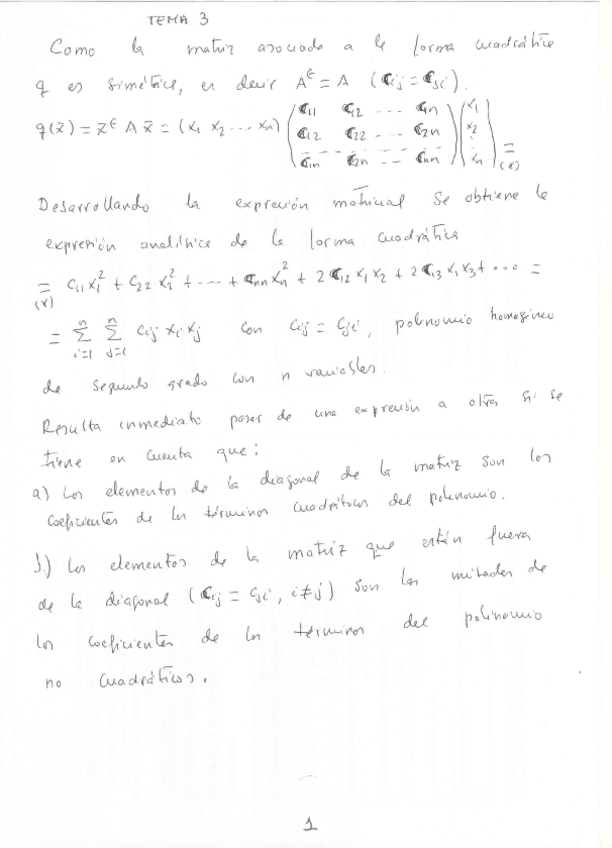 TEMA 3
Como la matriz asociada a la forma cuadrática
q es simétrica, es decir Aᵗ = A (cij = cji).
q(x̄) = x̄ᵗ A x̄ = (x1 x2 ... xn) (c11 c12 ... c1n) (x1)
(c12 c22 ... c2n) (x2) =
(c1n c2n ... cnn) (xn) (*)
Desarrollando la expresión matricial se obtiene la
expresión analítica de la forma cuadrática
= c11 x1² + c22 x2² + ... + cnn xn² + 2 c12 x1 x2 + 2 c13 x1 x3 + ... =
(*)
= Σ(i=1, n) Σ(j=1, n) cij xi xj con cij = cji, polinomio homogéneo
de segundo grado con n variables.
Resulta inmediato pasar de una expresión a otra si se
tiene en cuenta que:
a) Los elementos de la diagonal de la matriz son los
coeficientes de los términos cuadráticos del polinomio.
b) Los elementos de la matriz que están fuera
de la diagonal (cij = cji, i≠j) son las mitades de
los coeficientes de los términos del polinomio
no cuadráticos.
1